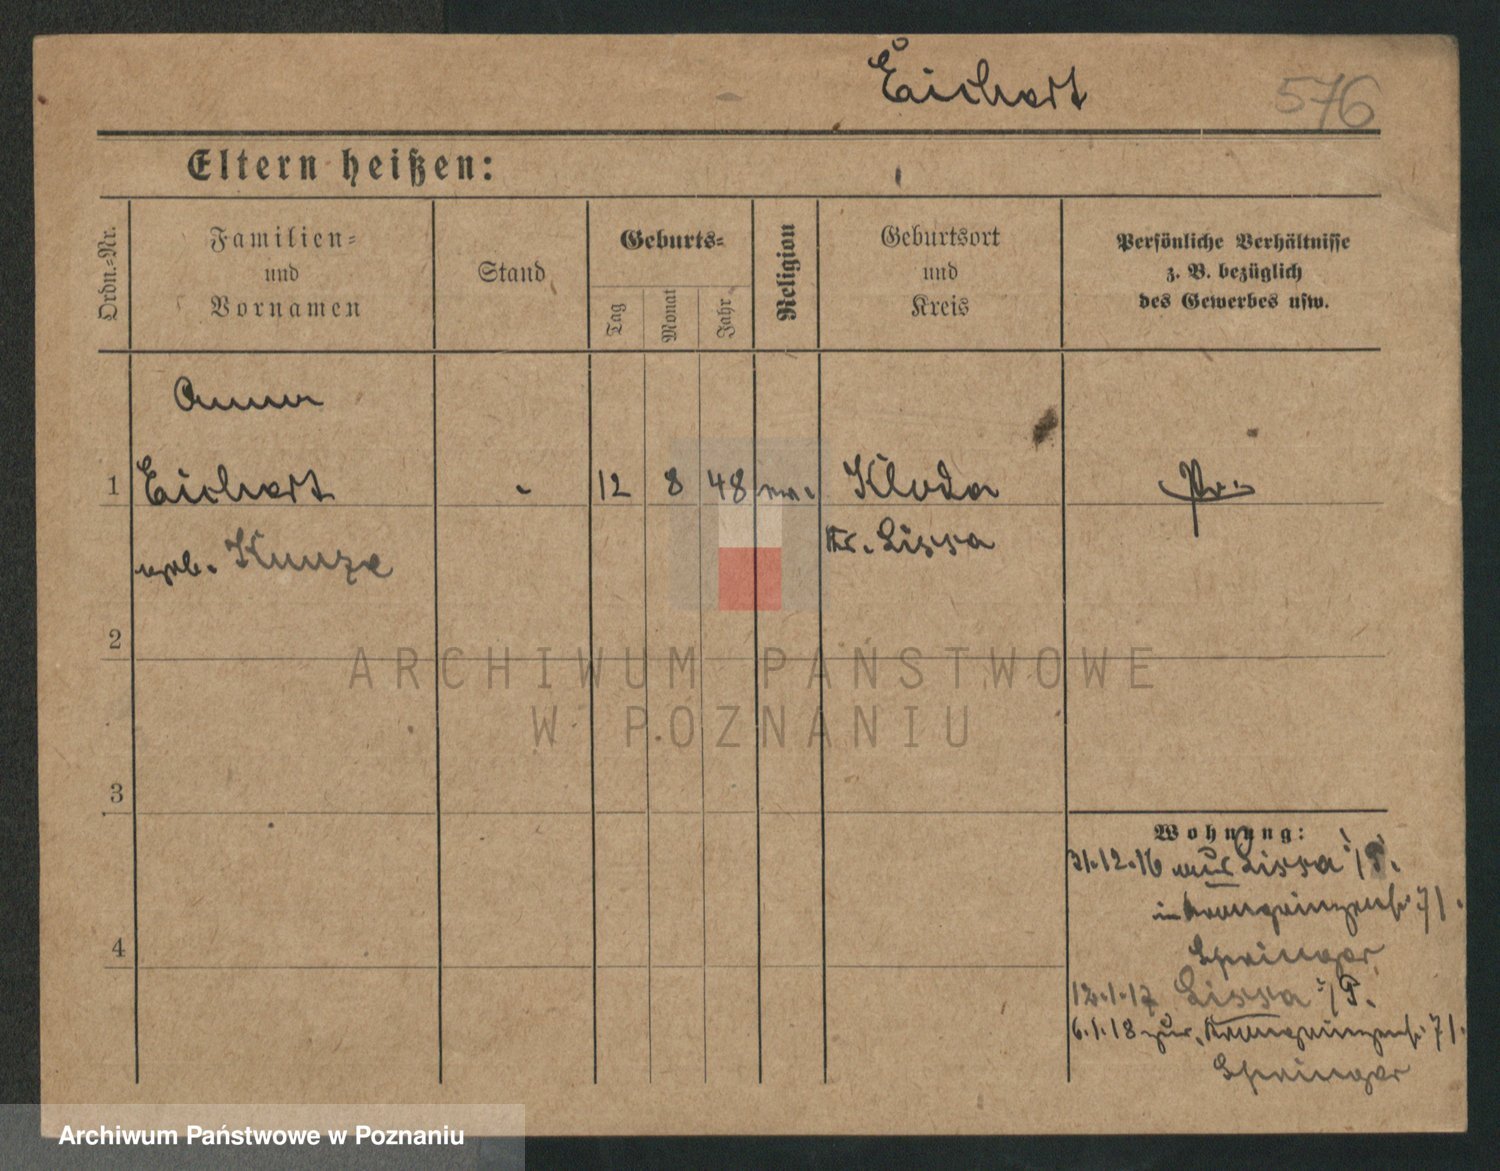 Eichert
576
Eltern heißen:
Ordn.-Nr.
Familien-
und
Vornamen
Stand
Geburts-
Tag
Monat
Jahr
Religion
Geburtsort
und
Kreis
Persönliche Verhältnisse
z. B. bezüglich
des Gewerbes usw.
Anna
1 Eichert - 12 8 48 Kloda Pr.
geb. Kunze Kr. Lissa
2
ARCHIWUM PAŃSTWOWE
W POZNANIU
3
Wohnung:
31.12.16 aus Lissa i/P.
in Kronprinzenstr 71.
Springer
4
12.1.17 Lissa i/P.
6.1.18 zur. Kronprinzenstr. 71.
Springer
Archiwum Państwowe w Poznaniu